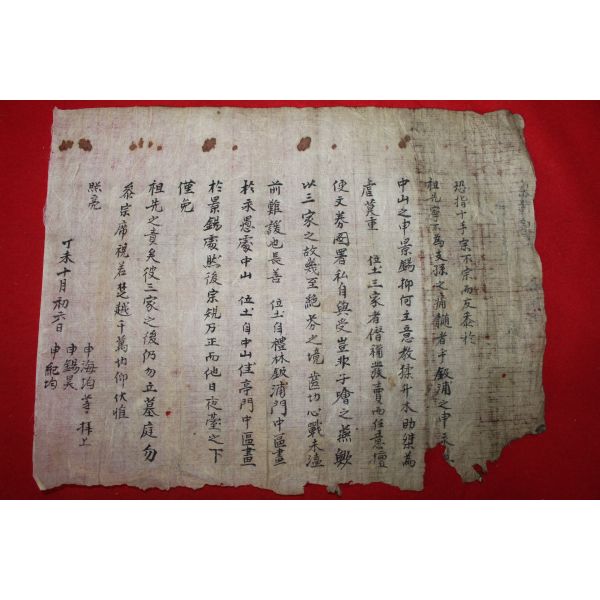 恐指十手宗不宗而反忝於
祖先寧不爲支孫之痛
中山之申景錫抑何主意教猱升木助桀爲
虐莫重 位土三家者僭稱發賣而任意擅
便文券圖署私自與受豈非子噲之燕歟
以三家之故幾至絶芬之境 盖切心戰未遑
前難護也長善 位土自禮林鈒浦門中區畫
於永愚處中山 位土自中山佳亭門中區畫
於景錫處然後宗䂓乃正而他日夜臺之下
僅免
祖先之責矣彼三家之後仍勿立墓庭勿
叅宗席視若楚越千萬切仰伏惟
照亮
丁未十月初六日
申海均等 拜上
申錫昊
申紀均